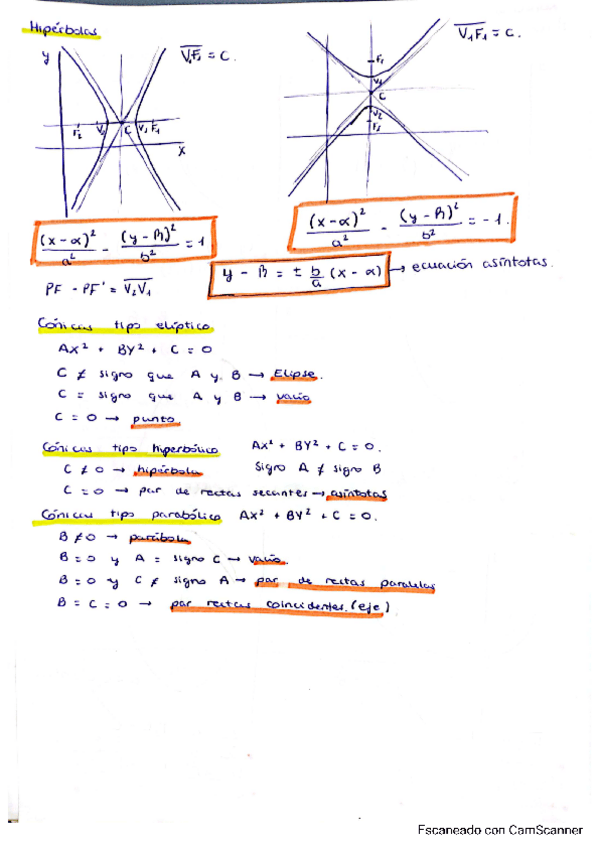 Hipérbolas
y
V₁F₁ = C.
F₂ V₂ C V₁ F₁
x
V₁F₁ = C.
F₁
V₁
C
V₂
F₂
(x - α)²/a² - (y - β)²/b² = 1
(x - α)²/a² - (y - β)²/b² = -1.
y - β = ± b/a (x - α) → ecuación asíntotas.
PF - PF' = V₂V₁
Cónicas tipo elíptico
AX² + BY² + C = 0
C ≠ signo que A y B → Elipse.
C = signo que A y B → vacío
C = 0 → punto.
Cónicas tipo hiperbólico AX² + BY² + C = 0.
C ≠ 0 → hipérbola Signo A ≠ signo B
C = 0 → par de rectas secantes → asíntotas
Cónicas tipo parabólico AX² + BY² + C = 0.
B ≠ 0 → parábola
B = 0 y A = signo C → vacío.
B = 0 y C ≠ signo A → par de rectas paralelas
B = C = 0 → par rectas coincidentes. (eje)
Escaneado con CamScanner